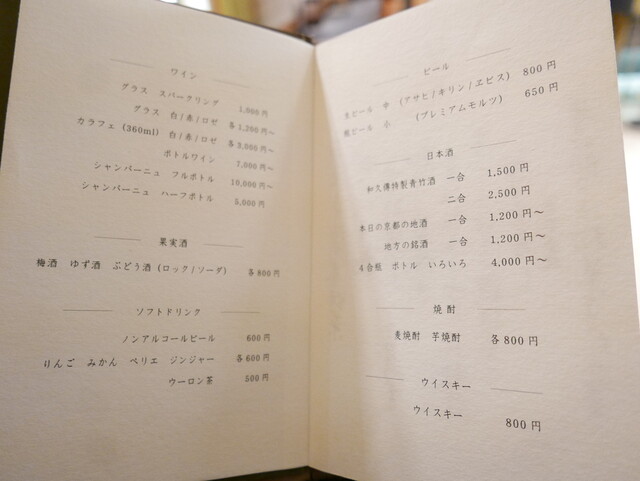 ワイン
グラス スパークリング 1,000円
グラス 白/赤/ロゼ 各1,200円~
カラフェ (360ml) 白/赤/ロゼ 各3,000円~
ボトルワイン 7,000円~
シャンパーニュ フルボトル 10,000円~
シャンパーニュ ハーフボトル 5,000円
果実酒
梅酒 ゆず酒 ぶどう酒 (ロック/ソーダ) 各800円
ソフトドリンク
ノンアルコールビール 600円
りんご みかん ペリエ ジンジャー 各600円
ウーロン茶 500円
ビール
ビール 中 (アサヒ/キリン/ヱビス) 800円
瓶ビール 小 (プレミアムモルツ) 650円
日本酒
和久傳特製青竹酒 一合 1,500円
二合 2,500円
本日の京都の地酒 一合 1,200円~
地方の銘酒 一合 1,200円~
4合瓶 ボトル いろいろ 4,000円~
焼酎
麦焼酎 芋焼酎 各800円
ウイスキー
ウイスキー 800円